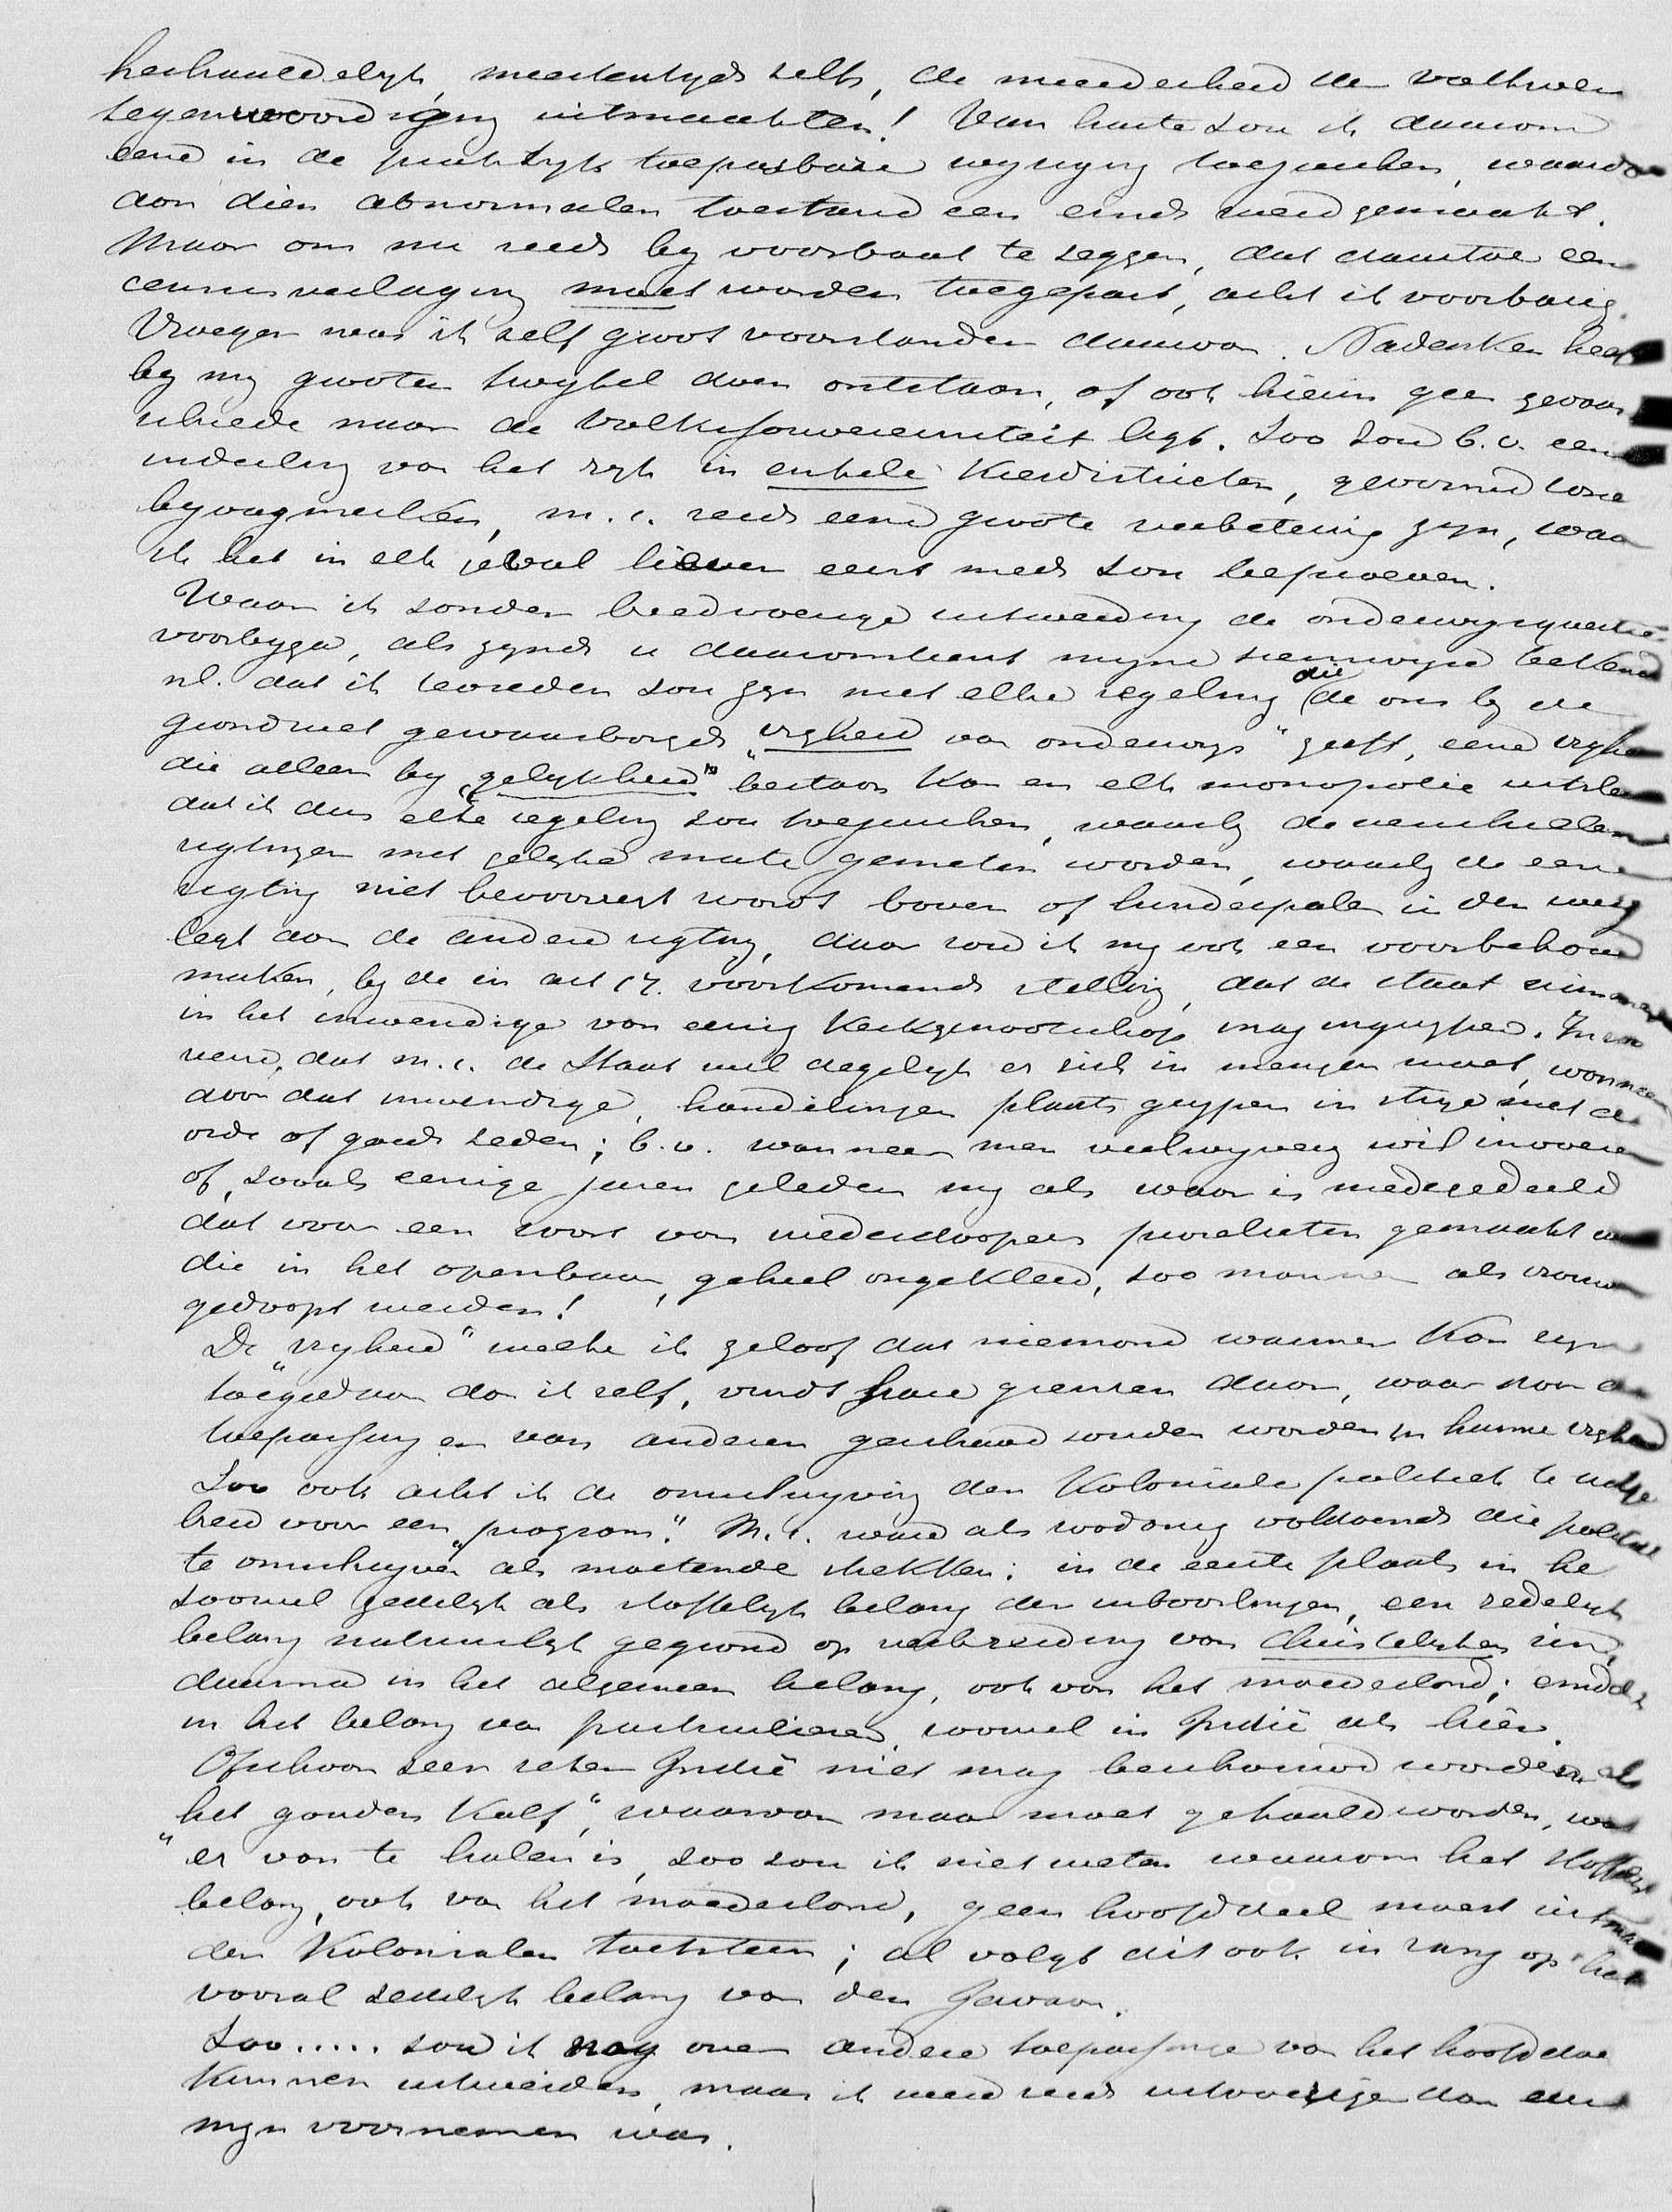 herhaaldelijk, meestentijds zelfs, de meerderheid der volksver
tegenwoordiging uitmaakten! Van harte zou ik daarom
eene in de praktijk toepasbare wijziging toejuichen, waardoor
aan dien abnormalen toestand een einde werd gemaakt.
Maar om nu reeds by voorbaat te zeggen, dat daartoe een
censusverlaging moet worden toegepast, acht ik voorbarig.
Vroeger was ik zelf groot voorstander daarvan. Nadenken heeft
by my grooten twyfel doen ontstaan, of ook hierin geen gevaar
schrede naar de volkssouvereiniteit ligt. Zoo zou b.v. eene
indeeling van het ryk in enkele Kiesdistricten, gevormd
m.i. reeds eene groote verbetering zyn, waar
ik het in elk geval liever eerst mede zou beproeven.
Waar ik zonder breedvoerige uitweiding de onderwysquaestie
voorbyga, als zynde u daaromtrent myne zienswyze bekend
nl. dat ik tevreden zou zyn met elke regeling die (de ons by de
grondwet gewaarborgde „vryheid van onderwys" geeft, eene vryheid
die alleen by „gelykheid" bestaan kan en elk monopolie uitsluit
dat ik dus elke regeling zou toejuichen, waarby de verschillende
rigtingen met gelyke mate gemeten worden, waarby de eene
rigting niet bevoorregt wordt boven of hinderpalen in den weg
legt aan de andere rigting, daar zou ik my ook een voorbehoud
maken, by de in art 17. voorkomende stelling, dat de staat nimmer
in het inwendige van eenig Kerkgenootschap mag ingrypen.
dat m.i. de Staat wel degelyk er zich in mengen moet, wanneer
door dat inwendige, handelingen plaats grypen in stryd met de
orde of goede zeden; b.v. wanneer men veelwyvery wil invoeren
of, zooals eenige jaren geleden my als waar is medegedeeld
dat voor een soort van wederdoopers proselieten gemaakt
die in het openbaar, geheel ongekleed, zoo mannen als vrouwen
gedoopt werden!
De „vryheid" welke ik geloof dat niemand warmer kan zyn
toegedaan dan ik zelf, vindt hare grenzen daar, waar van de
toepassing er van anderen geschaad zouden worden in hunne vryheid
Zoo ook acht ik de omschryving der Koloniale politiek te uitge
breid voor een „program". M.i. ware als zoodanig voldoende die politiek
te omschryven „als moetende strekken: in de eerste plaats in het
zoowel zedelyk als stoffelyk belang der inboorlingen, een zedelyk
belang natuurlyk gegrond op verbreiding van Christelyken zin,
daarna in het algemeen belang, ook van het moederland; eindelyk
in het belang van particulieren, zoowel in Indië als hier.
Ofschoon zeer zeker Indië niet mag beschouwd worden als
het gouden Kalf", waarvan maar moet gehaald worden, wat
„er van te halen is, zoo zou ik niet weten waarom het stoffelyk
belang, ook van het moederland, geen hoofddeel moest uitmaken
der Kolonialen toetssteen; al volgt dit ook in rang op het
vooral zedelyk belang van den Javaan.
Zoo..... zou ik nog over andere toepassingen van het hoofddoel
kunnen uitweiden, maar ik werd reeds uitvoeriger dan eerst
myn voornemen was.